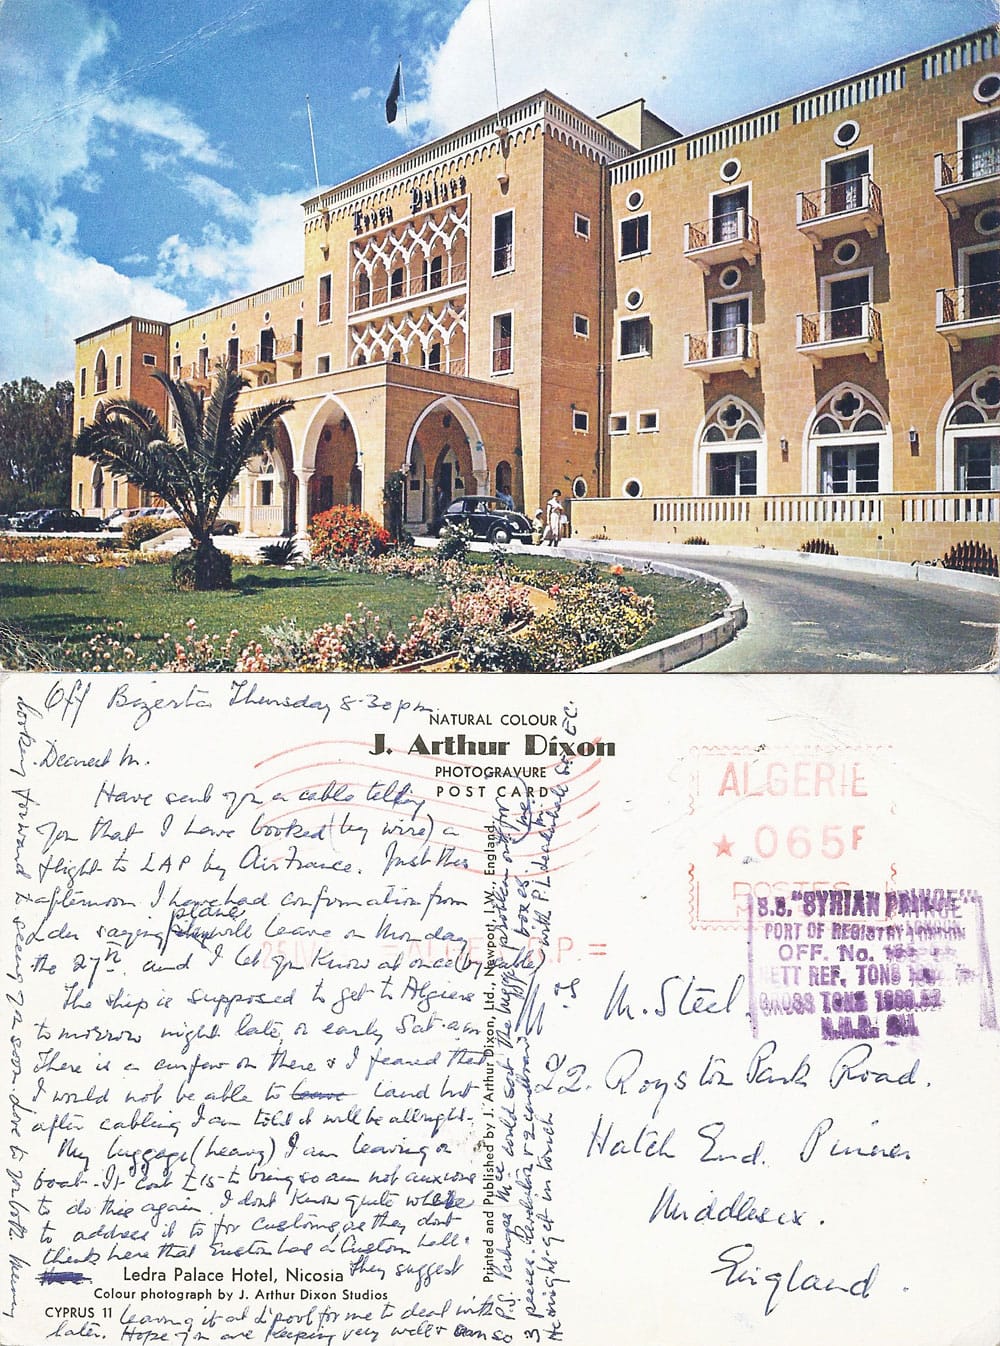 Ledra Palace
Off Bizerta Thursday 8-30 pm.
NATURAL COLOUR
J. Arthur Dixon
PHOTOGRAVURE
POST CARD
Dearest M.
Have sent you a cable telling
you that I have booked (by wire) a
flight to LAP by Air France. Just this
afternoon I have had confirmation from
Ldn saying plane will leave on Monday
the 27th. and I let you know at once (by cable)
The ship is supposed to get to Algiers
tomorrow night late, or early Sat. am
There is a curfew on there & I feared that
I would not be able to leave land but
after cabling I am told it will be allright.
My luggage (heavy) I am leaving on
boat. It cost £15 to bring so am not anxious
to do this again. I dont know quite where
to address it to for customs as they dont
think here that Euston has a Custom hall.
They suggest
Ledra Palace Hotel, Nicosia
Colour photograph by J. Arthur Dixon Studios
CYPRUS 11
leaving it at L'pool for me to deal with
later. Hope you are keeping very well & am so
looking forward to seeing you soon. love to you both.
Printed and Published by J. Arthur Dixon, Ltd., Newport, I.W., England.
P.S. Perhaps Mee could sort the luggage problem out for
me
3 pieces.
He might get in touch with P.L. dealerhall
ALGERIE
★ 065F
POSTES
R.P.=
S.S. "SYRIAN PRINCE"
PORT OF REGISTRY LONDON
OFF. No.
NETT REF. TONS
GROSS TONS
M. Steel.
22. Royston Park Road.
Hatch End. Pinner
Middlesex.
England.